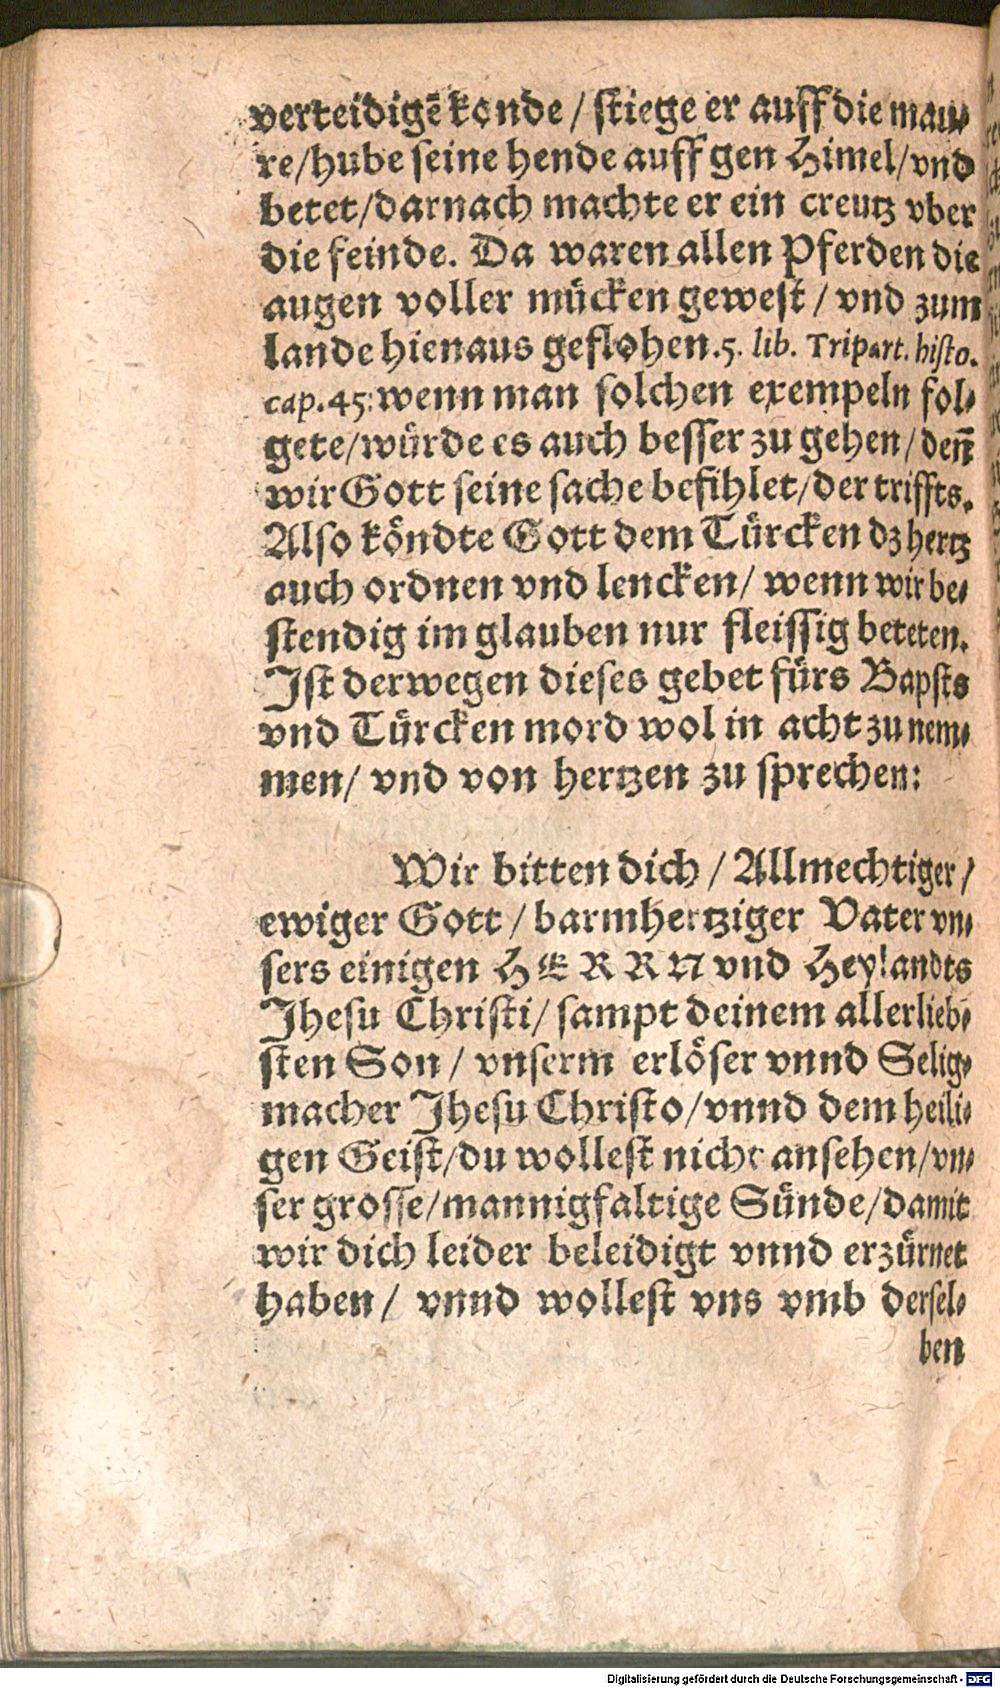 verteidigē konde / stiege er auff die mau⸗
re/hube seine hende auff gen Himel/vnd
betet/darnach machte er ein creutz vber
die feinde. Da waren allen Pferden die
augen voller mücken gewest / vnd zum
lande hienaus geflohen.5. lib. Tripart. histo.
cap.45. wenn man solchen exempeln fol⸗
gete/würde es auch besser zu gehen/ deñ
wir Gott seine sache befihlet/der triffts.
Also köndte Gott dem Türcken dz hertz
auch ordnen vnd lencken/ wenn wir be⸗
stendig im glauben nur fleissig beteten.
Ist derwegen dieses gebet fürs Bapsts
vnd Türcken mord wol in acht zu nem⸗
men/ vnd von hertzen zu sprechen:
Wir bitten dich / Allmechtiger/
ewiger Gott / barmhertziger Vater vn⸗
sers einigen HERRN vnd Heylandts
Jhesu Christi/ sampt deinem allerlieb⸗
sten Son / vnserm erlöser vnnd Selig⸗
macher Jhesu Christo/vnnd dem heili⸗
gen Geist/du wollest nicht ansehen/vn⸗
ser grosse/mannigfaltige Sünde/damit
wir dich leider beleidigt vnnd erzürnet
haben/ vnnd wollest vns vmb dersel⸗
ben
Digitalisierung gefördert durch die Deutsche Forschungsgemeinschaft - DFG